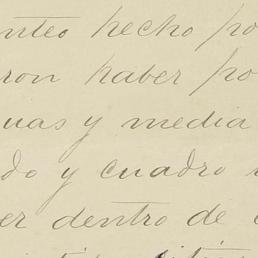 nteo hecho po
ron haber po
uas y media
do y cuadro
er dentro de